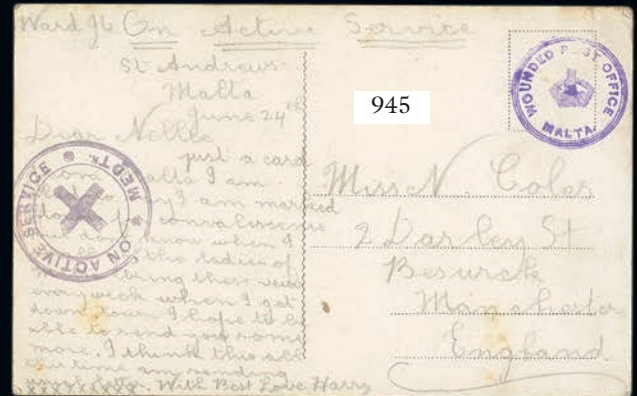 Ward J6 On Active Service
St Andrews
Malta
June 24th
Dear Nellie
just a card
Malta I am
I am marked
convalescence
know when I
the ladies of
bring these round
every week when I get
down town I hope to be
able to send you some
more. I think this all
time am sending
With Best Love Harry
ON ACTIVE SERVICE
MED
945
WOUNDED POST OFFICE
MALTA
Miss N. Coles
2 Darley St
Beswick
Manchester
England